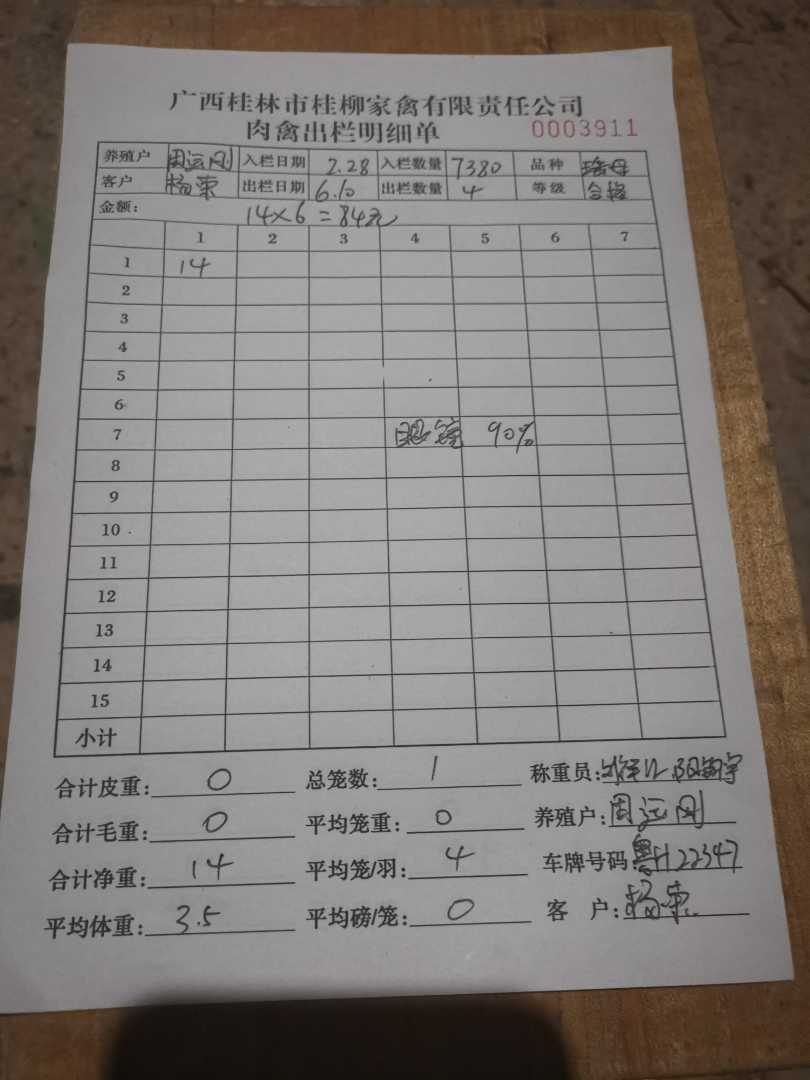 广西桂林市桂柳家禽有限责任公司
肉禽出栏明细单 0003911
养殖户 周运刚 入栏日期 2.28 入栏数量 7380 品种
客户 杨 出栏日期 6.10 出栏数量 4 等级 合格
金额: 14×6=84元
1 2 3 4 5 6 7
1 14
2
3
4
5
6
7 90%
8
9
10
11
12
13
14
15
小计
合计皮重: 0 总笼数: 1 称重员:
合计毛重: 0 平均笼重: 0 养殖户: 周运刚
合计净重: 14 平均笼/羽: 4 车牌号码: 22347
平均体重: 3.5 平均磅/笼: 0 客 户: 杨